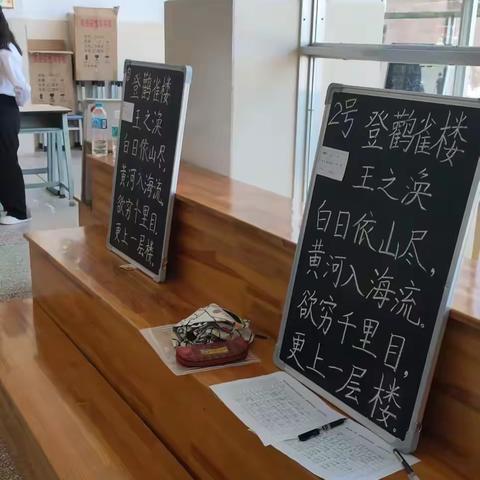 登鸛雀楼
王之涣
白日依山尽,
黄河入海流。
欲穷千里目,
更上一层楼。
2号 登鸛雀楼
王之涣
白日依山尽,
黄河入海流.
欲穷千里目,
更上一层楼.